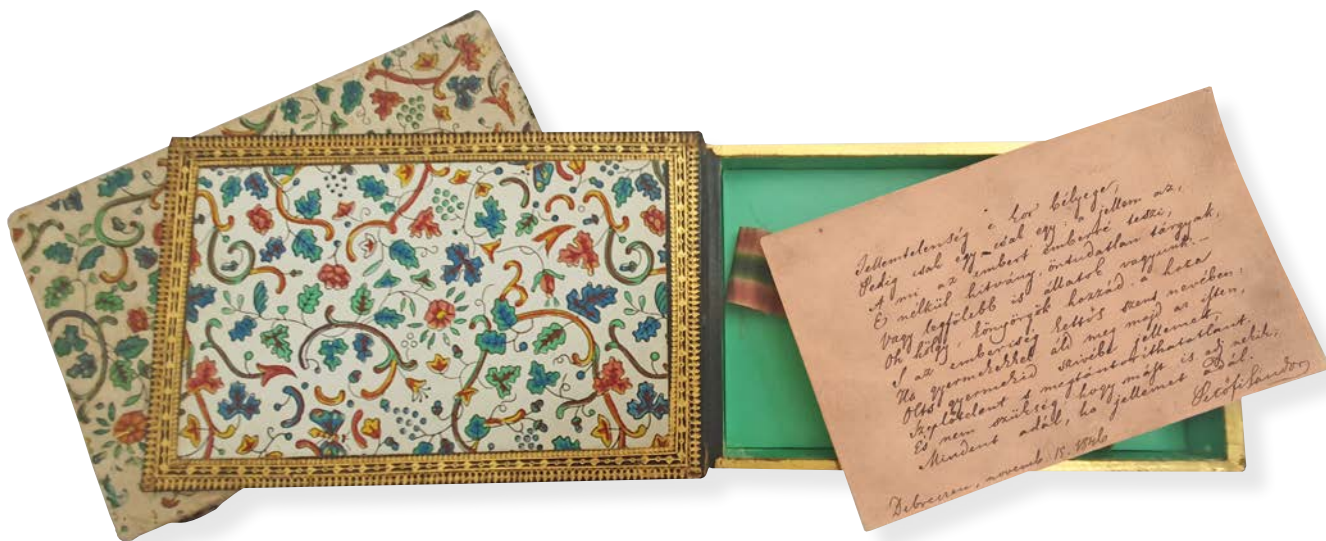 Jellemtelenség e' kor bélyege,
Pedig csak egy – csak egy a jellem az,
A mi az embert emberré teszi,
E nélkül hitvány, öntudatlan tárgyak,
Vagy legfölebb is állatok vagyunk. –
Oh hölgy, könyörgök hozzád: a haza
S az emberiség kettős szent nevében,
Ha gyermekekkel áld meg majd az isten,
Olts gyermekid szivébe jellemet,
Szeplőtelent s megtántorithatatlant,
És nem szükség, hogy mást is adj nekik:
Mindent adál, ha jellemet adál.
Petőfi Sándor
Debreczen, novemb. 15. 1846